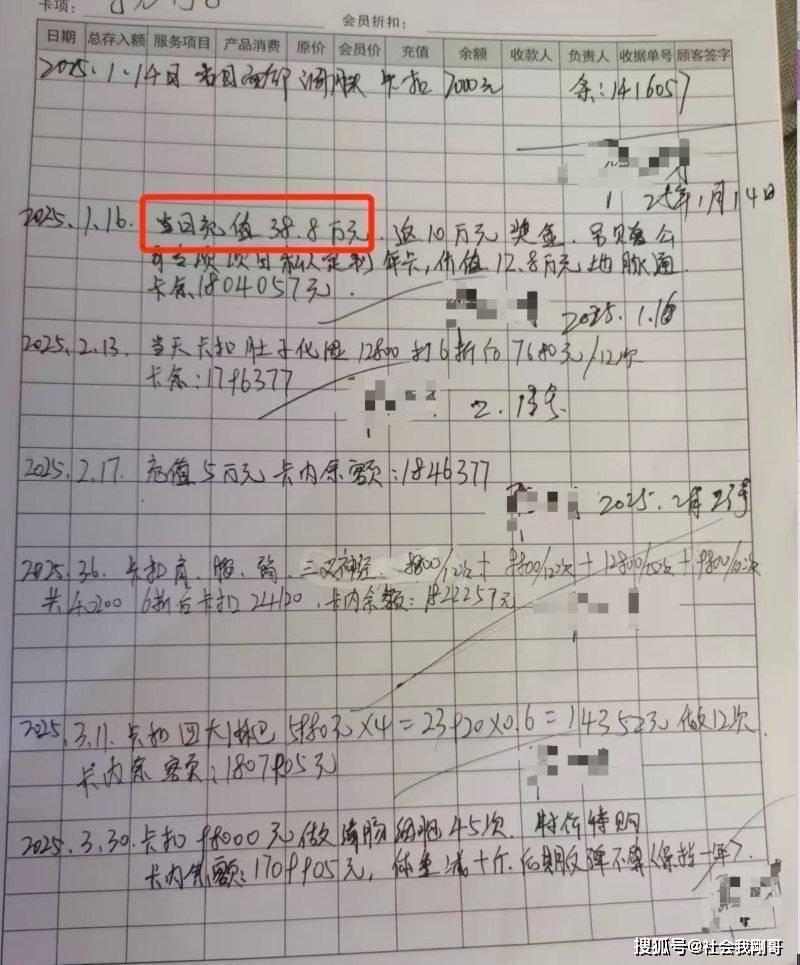 卡项：
会员折扣：
日期 总存入额 服务项目 产品消费 原价 会员价 充值 余额 收款人 负责人 收据单号 顾客签字
2025.1.14日 卡扣 7000元 余：1416057
25年1月14日
2025.1.16. 当日充值 38.8万元. 返10万元奖金.
年卡，价值12.8万元地脉通
卡余1804057元.
2025.1.16
2025.2.13. 当天卡扣肚子化湿 12800 打6折后 7680元/12次
卡余：1796377
2. 13号
2025.2.17. 充值5万元 卡内余额：1846377
2025.2月
2025.3.6. 卡扣肩、腸、三叉神经. 9800/12次+12800/15次+9800/12次
共40200 6折后卡扣24120，卡内余额：1822257元
2025.3.11. 卡扣四大淋巴 5980元×4=23920×0.6=14352元 做12次.
卡内余额：1807905元
2025.3.30. 卡扣98000元做 45次. 特价特购
卡内余额：1709905元，体重减十斤. 后期反弹不算（保持一年）.
搜狐号@社会我刚哥